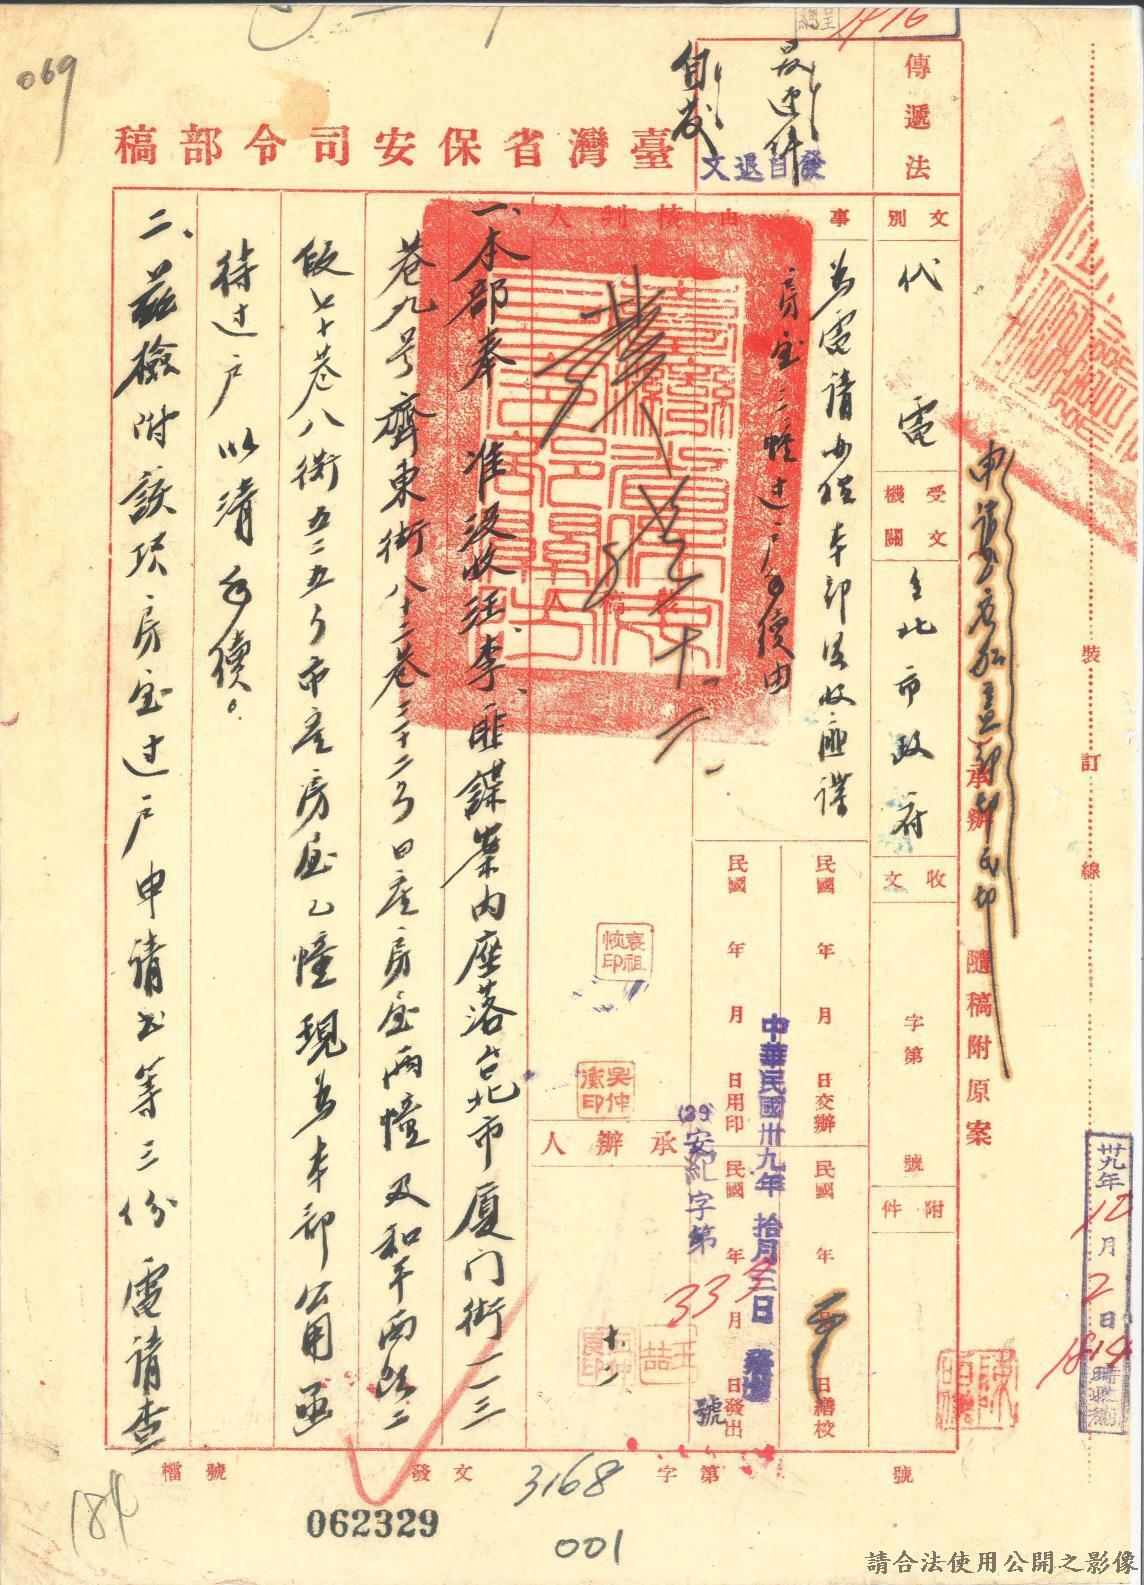 069
臺灣省保安司令部稿
傳遞法
最速件
自发
發自退文
文別
代電
受文機關
台北市政府
收文
字第
號
附件
事由
為電請辦理本部沒收匪諜
房屋三幢过户手續由
核判人
承辦人
袁祖恢印
吳仲衡印
王喆
十、二
十二
民國 年 月 日交辦
民國 年 月 日繕校
民國 年 月 日用印
民國 年 月 日發出
中華民國卅九年拾月三日
(39)安紀字第
號
一、本部奉准沒收汪、李、匪諜案內座落台北市厦门街一一三
巷九号齊東街八十二巷二十二号日產房屋兩幢及和平西路二
段七十巷八衖五二五号市產房屋乙幢現為本部公用亟
待过户以清手續。
二、茲檢附該項房屋过户申請书等三份電請查
申請书
承辦
隨稿附原案
裝訂線
卅九年10月2日
時
檔號
發文
字第
號
3168
184
062329
001
請合法使用公開之影像